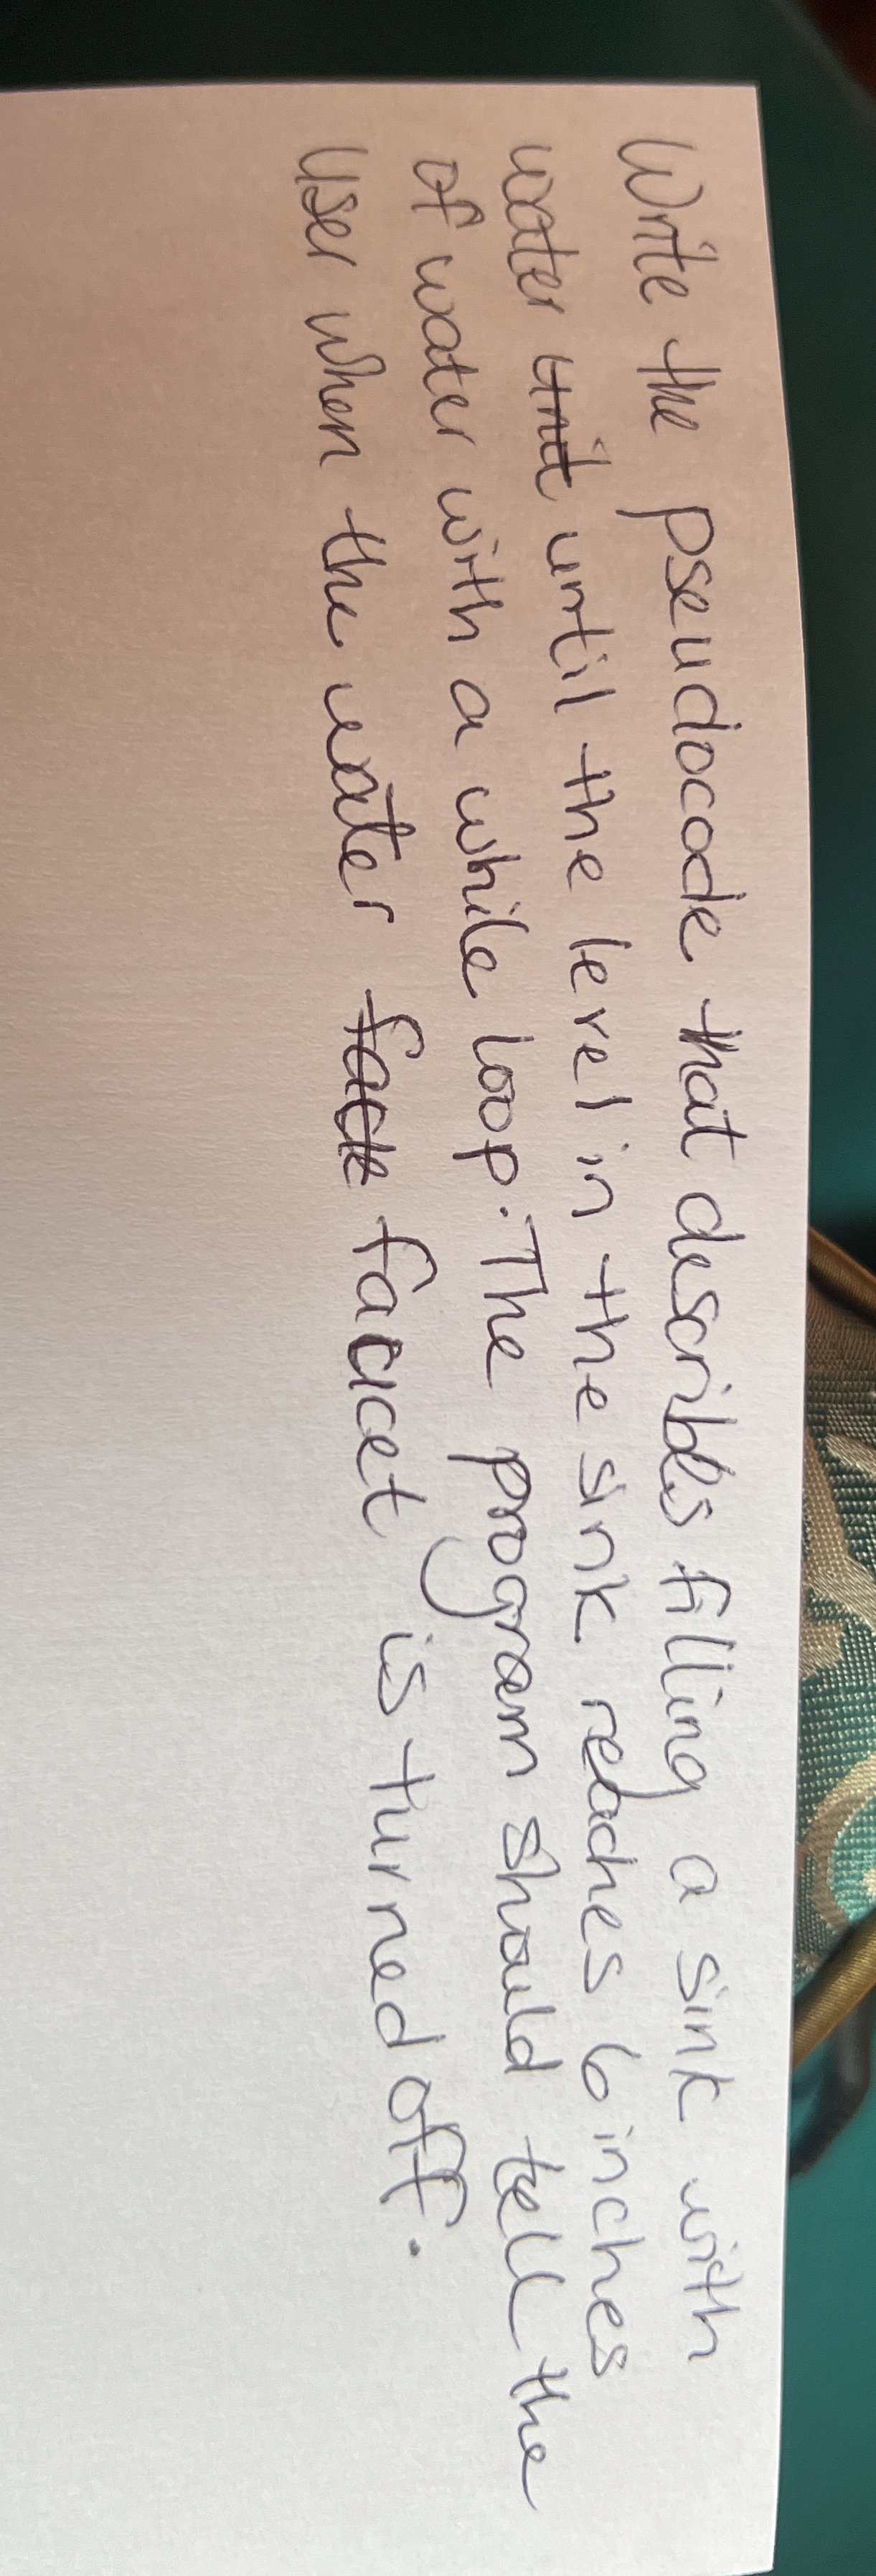 Write the pseudocode that describes filling a sink with
water unit until the level in the sink reaches 6 inches
of water with a while loop. The program should tell the
user when the water fack faucet is turned off.